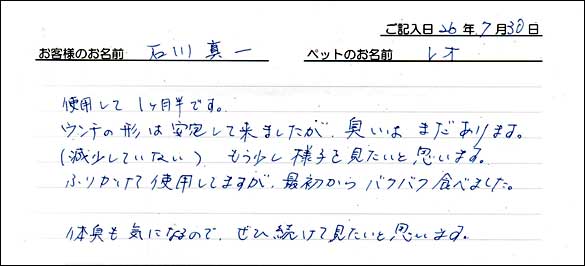 ご記入日 26 年 7 月 30 日
お客様のお名前 石川真一 ペットのお名前 レオ
使用して 1ヶ月半です。
ウンチの形は安定して来ましたが、臭いは まだあります。
(減少していない) もう少し様子を見たいと思います。
ふりかけて使用してますが、最初から バクバク食べました。
体臭も気になるので、ぜひ続けて見たいと思います。